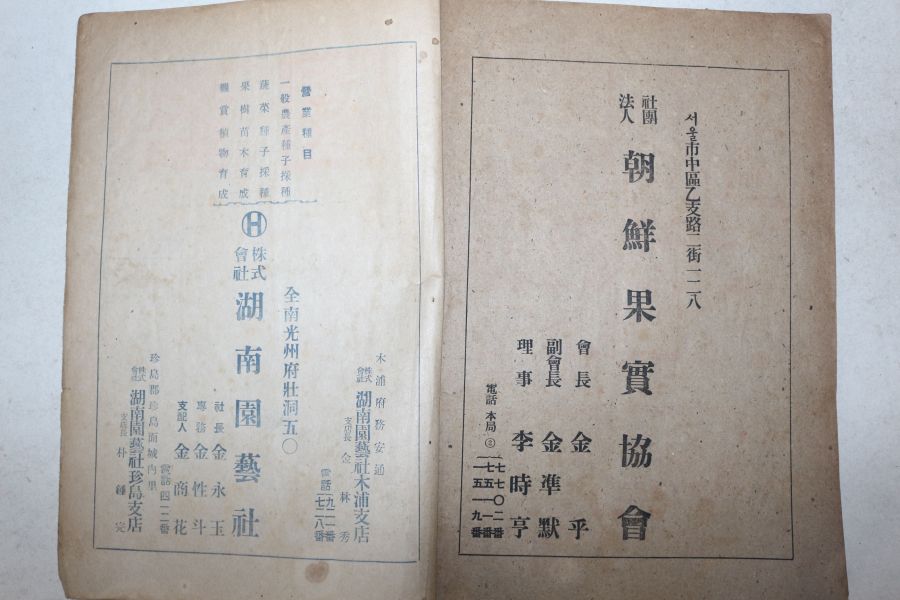 서울市中區乙支路二街一二八
社團法人 朝鮮果實協會
會長 金乎
副會長 金準默
理事 李時亨
電話 本局② 一七七〇二番
七五一一番
一五一九番
營業種目
一般農產種子採種
蔬菜種子採種
果樹苗木育成
觀賞植物育成
H
株式會社 湖南園藝社
全南光州府壯洞五〇
社長 金永玉
專務 金性斗
支配人 金商花
木浦府務安通
株式會社 湖南園藝社木浦支店
支店長 金林秀
電話 一九二一番
一七二八番
珍島郡珍島面城內里
電話四二二番
株式會社 湖南園藝社珍島支店
支店長 朴鍾完